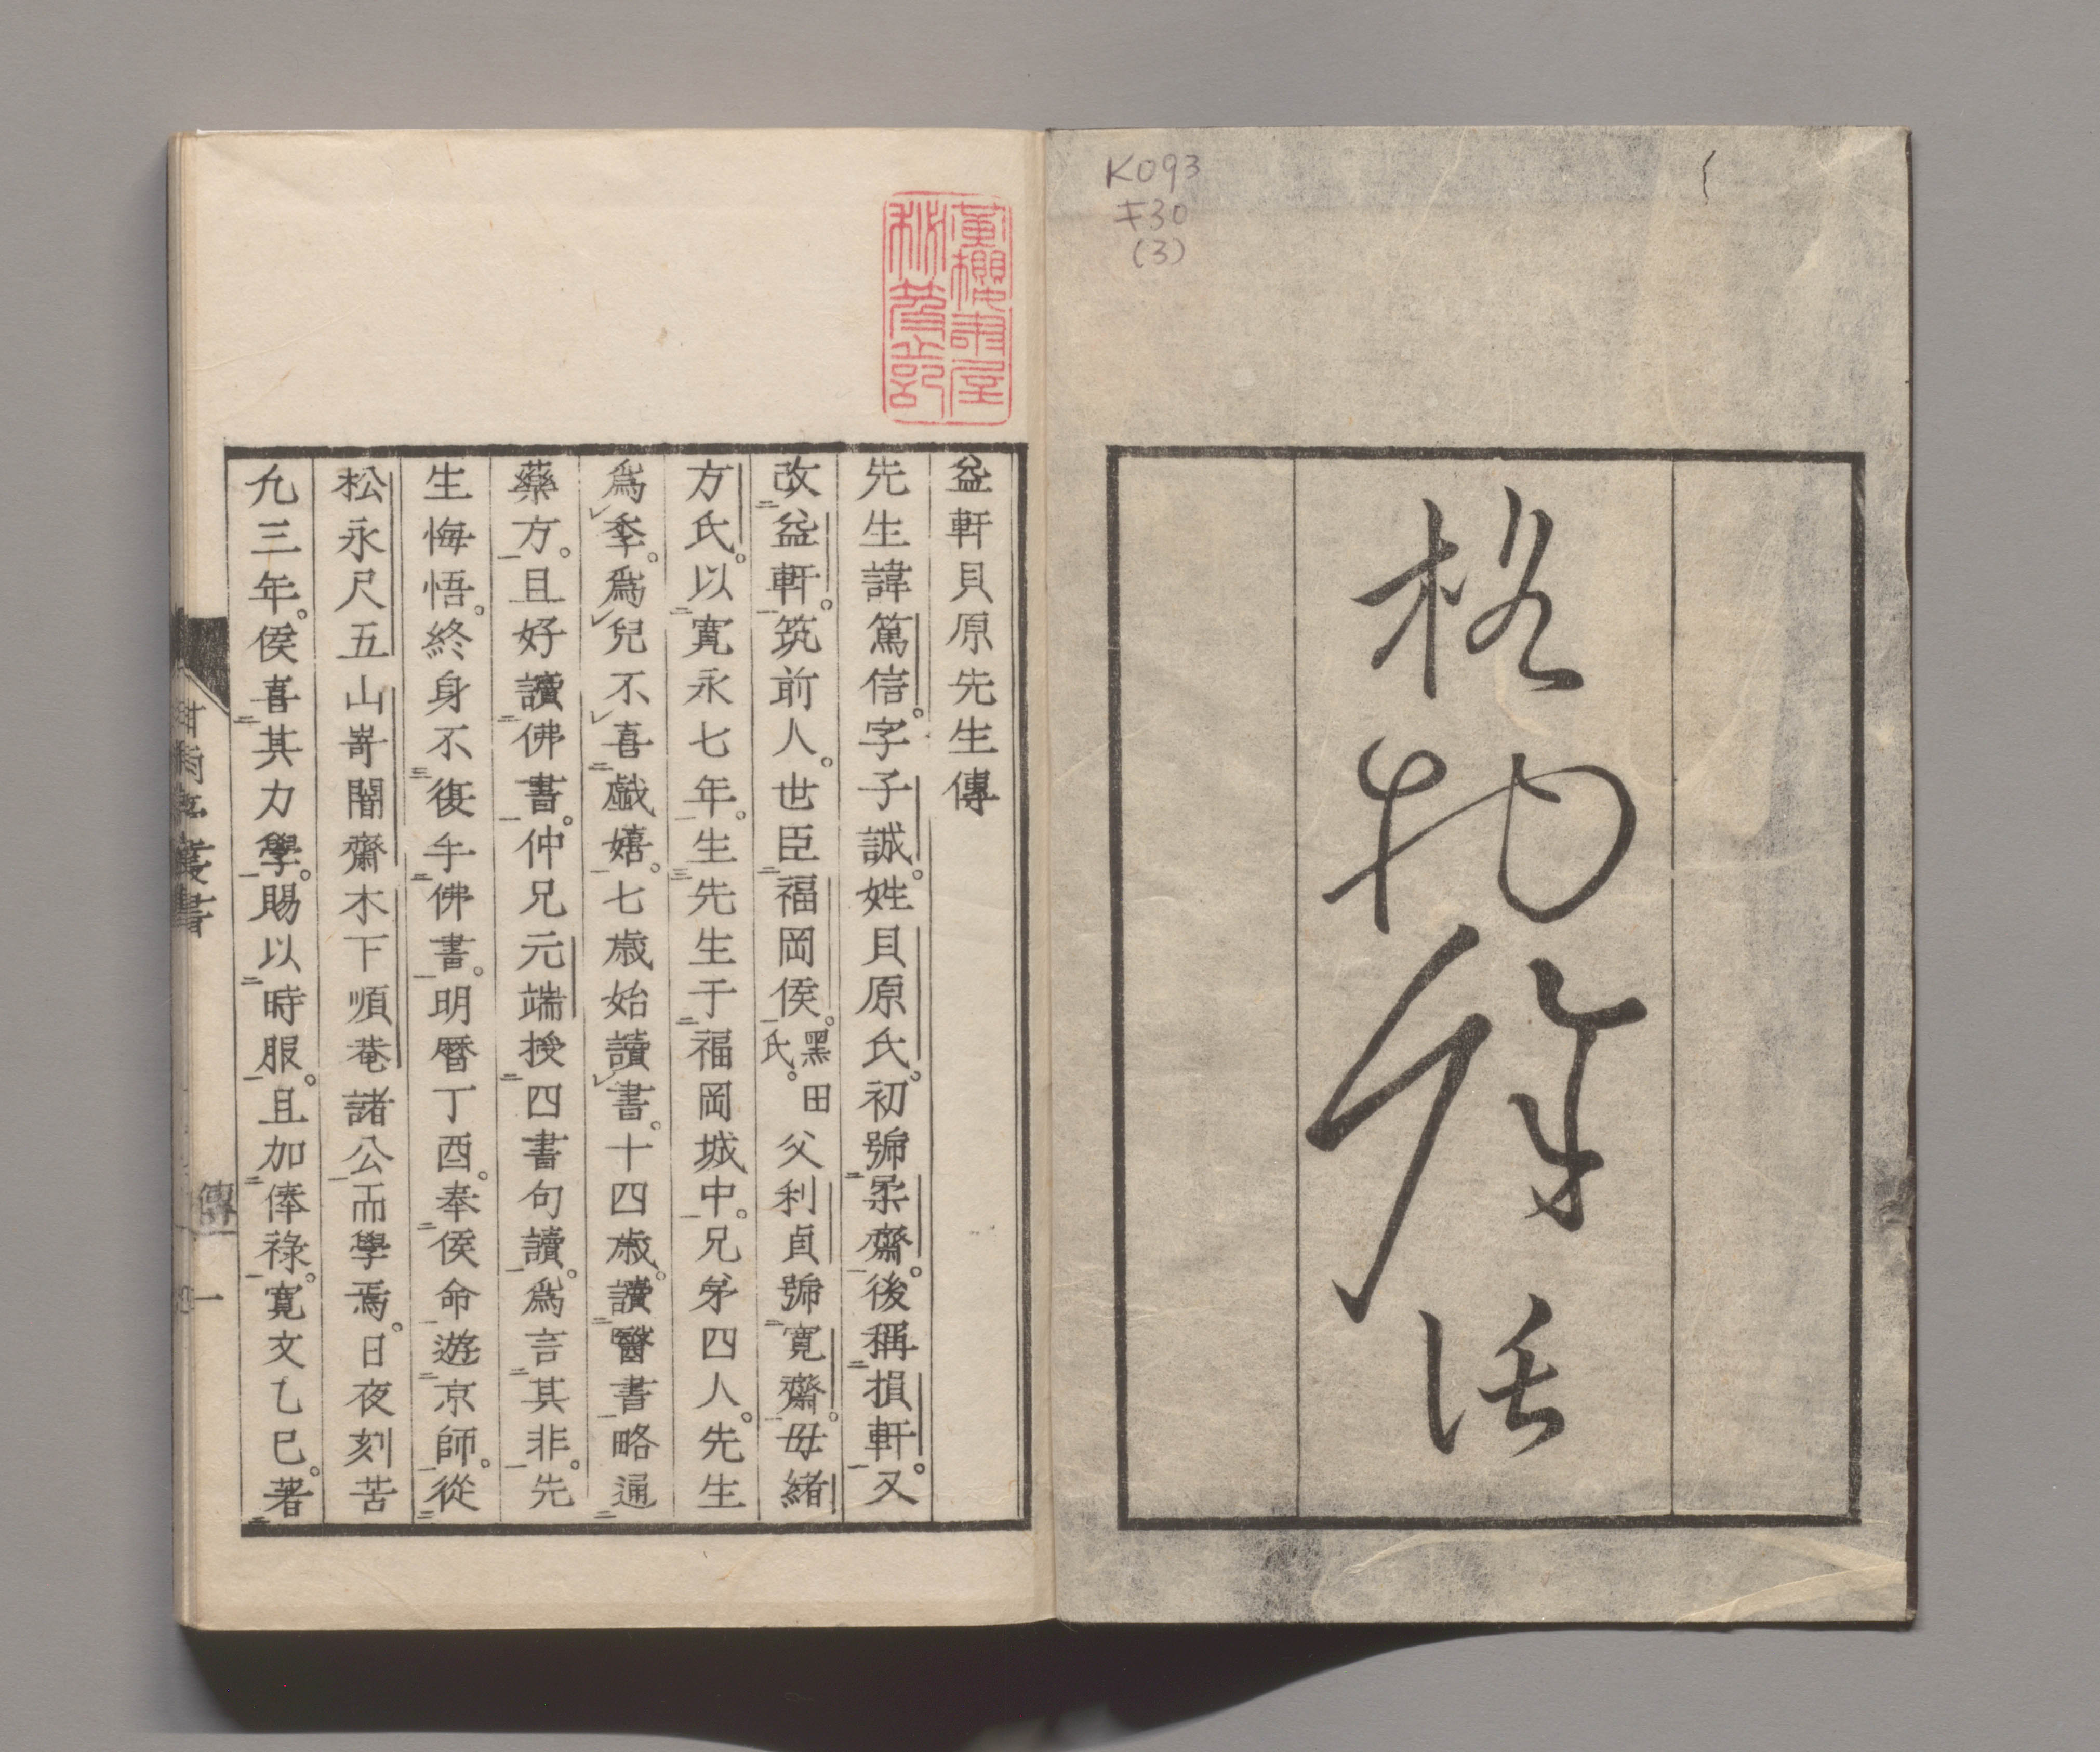 K093
キ30
(3)
格物餘話
益軒貝原先生傳
先生諱篤信。字子誠。姓貝原氏。初號柔齋。後稱損軒。又
改益軒。筑前人。世臣福岡侯。黑田氏。父利貞號寛齋。母緒
方氏。以寛永七年。生先生于福岡城中。兄弟四人。先生
爲季。爲兒不喜戯嬉。七歳始讀書。十四歳。讀醫書略通
藥方。且好讀佛書。仲兄元端授四書句讀。爲言其非。先
生悔悟。終身不復手佛書。明曆丁酉。奉侯命遊京師。從
松永尺五山嵜闇齋木下順菴諸公而學焉。日夜刻苦
凢三年。侯喜其力學。賜以時服。且加俸祿。寛文乙巳。著
甘雨亭叢書
傳
一